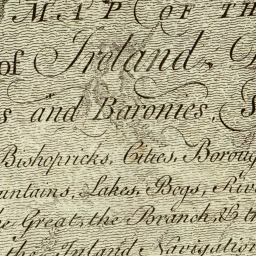 MAP OF TH
of Ireland,
and Baronies,
Bishopricks, Cities, Boroug
untains, Lakes, Bogs, Riv
he Great, the Branch, & th
the Inland Navigation